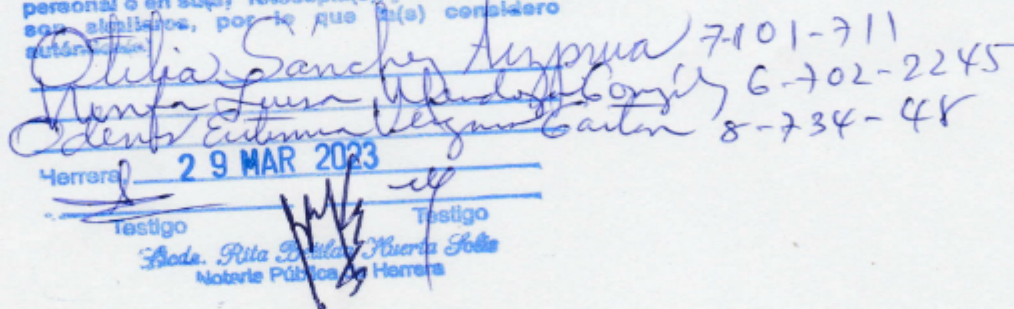 personal o en su(s),
son similares, por lo que la(s) considero
auténtica(s).
Otilia Sanchez Aizprua 7-101-711
Nenfa Luisa Mendoza González 6-702-2245
Odenis Eutimia Vergara Gaitan 8-734-48
Herrera 29 MAR 2023
Testigo Testigo
Licda. Rita Huerta Solís
Notaria Pública de Herrera